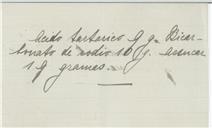 Acido tartarico 9 g. Bicar-
bonato de sodio 10 g. assucar
19 gramas.